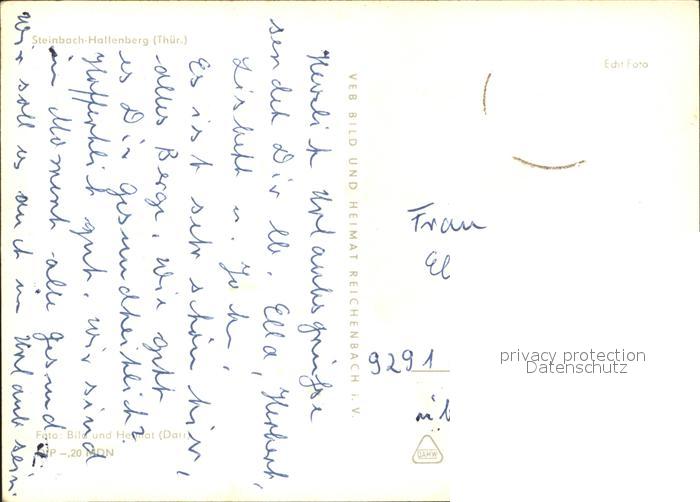 Steinbach-Hallenberg (Thür.)
Herzlich Urlaubsgrüße
sendet Dir lb. Ella, Herbert,
Lisbeth u.
Es ist sehr schön hier,
alles Berge. Wie geht
es Dir gesundheitlich?
Hoffentlich gut. Wir sind
im Moment alle gesund
Wie soll es auch im Urlaub sein.
Foto: Bild und Heimat (Darr)
EVP -,20 MDN
VEB BILD UND HEIMAT REICHENBACH i. V.
Echt Foto
Frau
El
9291
privacy protection
Datenschutz
DAHW